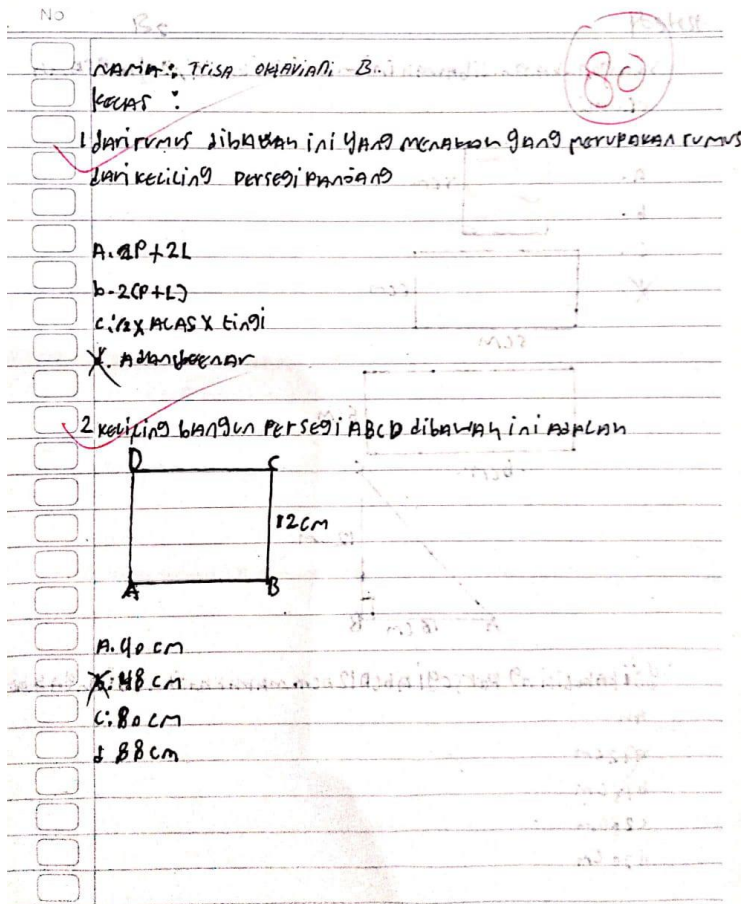 No
80
NAMA : TrisA OKtAViANi B.
KELAS :
1 dAri rumus dibAwAh ini yAng menAkAh yAng merupAkAn rumus
dAri keliling persegi pAnjAng
A. 2P+2L
b. 2(P+L)
C. 1/2 X ALAS X tingi
2 keliling bAngun Persegi ABCD dibAwAh ini AdALAh
D C
12 cm
A B
A. 40 cm
b. 48 cm
C. 80 cm
d 88 cm